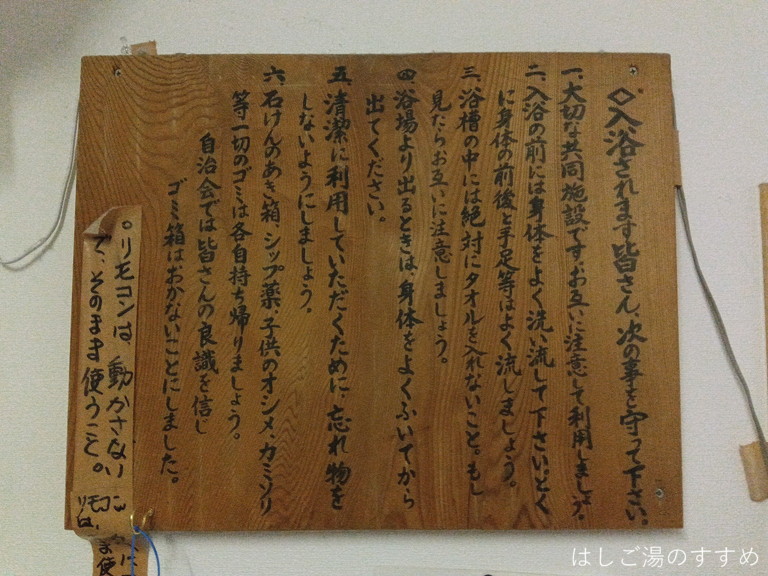 ◇入浴されます皆さん、次の事を守って下さい。
一、大切な共同施設です、お互いに注意して利用しましょう。
二、入浴の前には身体をよく洗い流して下さい。とく
に身体の前後と手足等はよく流しましょう。
三、浴槽の中には絶対にタオルを入れないこと。もし
見たらお互いに注意しましょう。
四、浴場より出るときは、身体をよくふいてから
出てください。
五、清潔に利用していただくために、忘れ物を
しないようにしましょう。
六、石けんのあき箱、シップ薬、子供のオシメ、カミソリ
等一切のゴミは各自持ち帰りましょう。
自治会では皆さんの良識を信じ
ゴミ箱はおかないことにしました。
○リモコンは、動かさない
で、そのまま使うこと。
リモコン
は、
はしご湯のすすめ